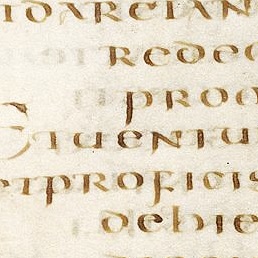 idareian
redeo
proo
etuentu
etproficis
debie